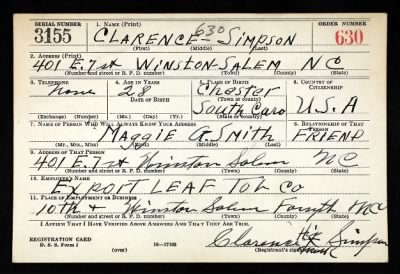 SERIAL NUMBER 1. NAME (Print) ORDER NUMBER
3155 CLARENCE 630 SIMPSON 630
(First) (Middle) (Last)
2. ADDRESS (Print)
401 E. 7 st WINSTON-SALEM NC
(Number and street or R. F. D. number) (Town) (County) (State)
3. TELEPHONE 4. AGE IN YEARS 5. PLACE OF BIRTH 6. COUNTRY OF CITIZENSHIP
none 28 Chester
DATE OF BIRTH (Town or county)
South Caro U.S.A
(Exchange) (No.) (Mo.) (Day) (Yr.) (State or country)
7. NAME OF PERSON WHO WILL ALWAYS KNOW YOUR ADDRESS 8. RELATIONSHIP OF THAT PERSON
Maggie A. Smith FRIEND
(Mr., Mrs., Miss) (First) (Middle) (Last)
9. ADDRESS OF THAT PERSON
401 E. 7 st Winston Salem NC
(Number and street or R. F. D. number) (Town) (County) (State)
10. EMPLOYER'S NAME
Export LEAF Tob Co
11. PLACE OF EMPLOYMENT OR BUSINESS
10th + Winston Salem Forsyth NC
(Number and street or R. F. D. number) (Town) (County) (State)
I AFFIRM THAT I HAVE VERIFIED ABOVE ANSWERS AND THAT THEY ARE TRUE.
REGISTRATION CARD
D. S. S. Form 1 (over) 16—17105
Clarence his X mark Simpson
(Registrant's signature)